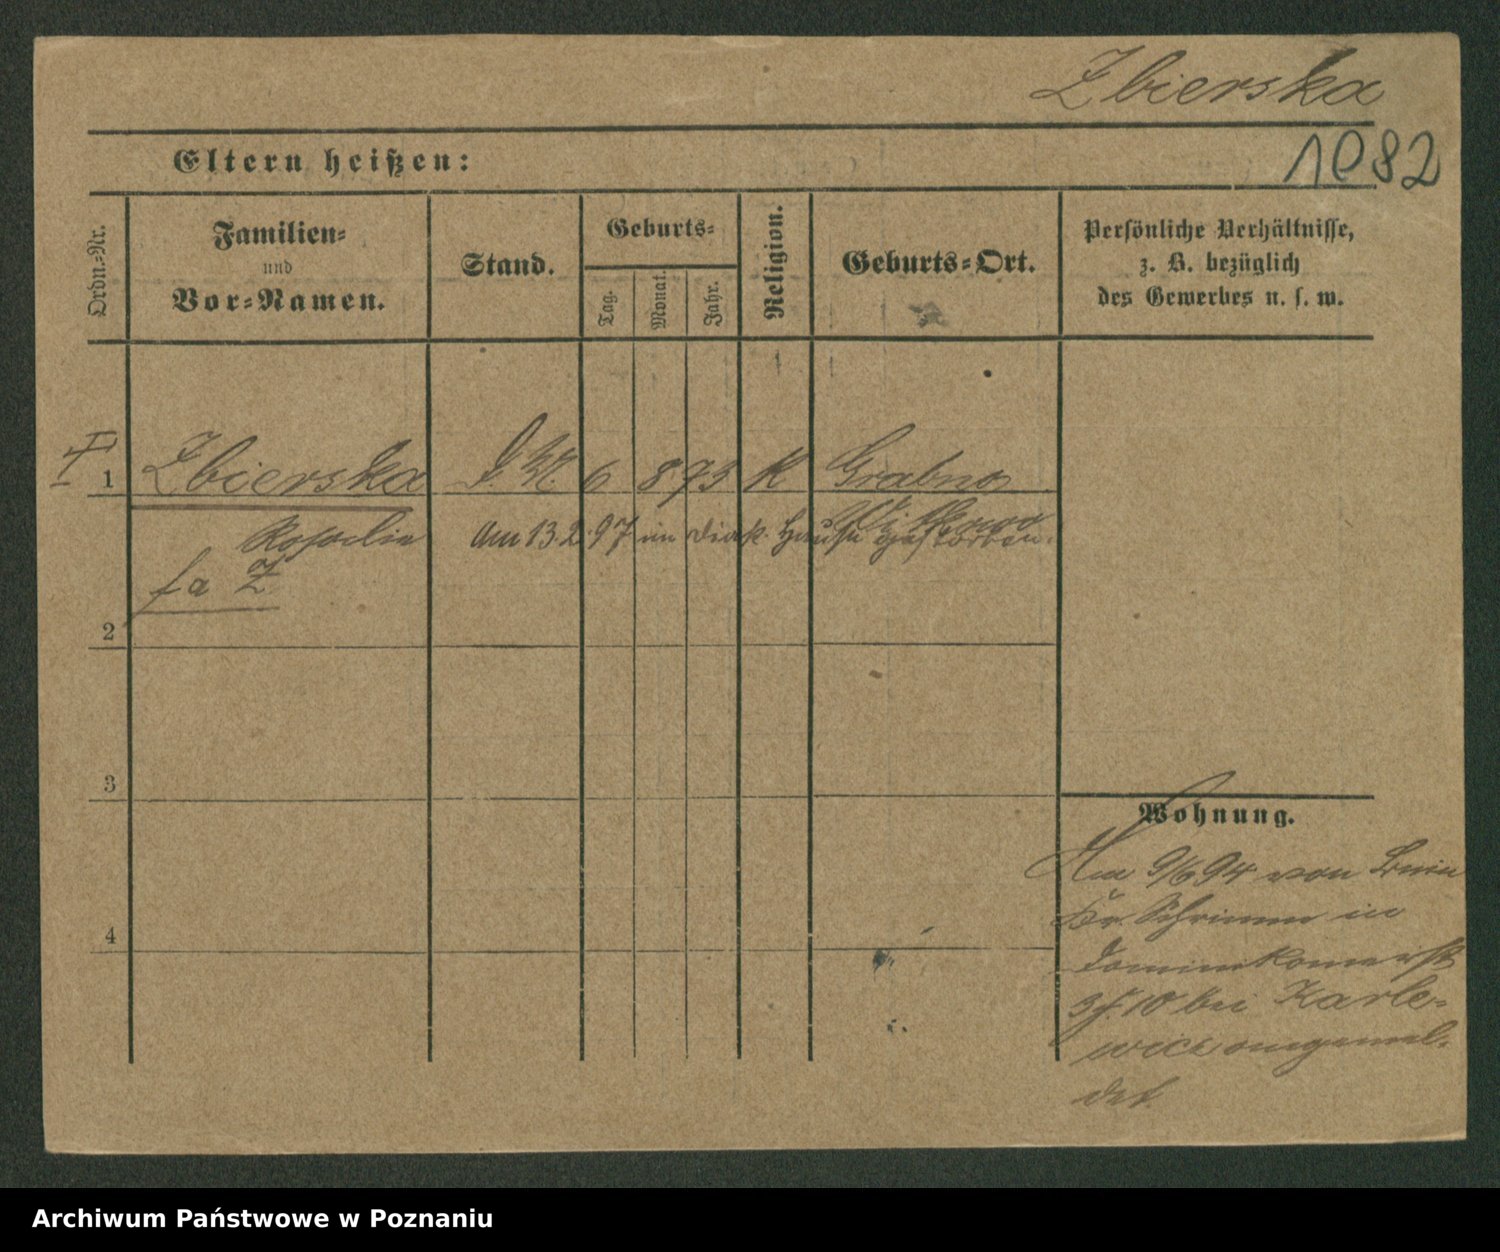 Zbierska
1082
Eltern heißen:
Ordn.-Nr.
Familien-
und
Vor-Namen.
Stand.
Geburts-
Tag.
Monat.
Jahr.
Religion.
Geburts-Ort.
Persönliche Verhältnisse,
z. B. bezüglich
des Gewerbes u. s. w.
1 Zbierska 6 8 73 K Grabno
Witkowo
Rosalie am 13.2.97 im Diak. Hause gestorben.
fa Z
2
3
4
Wohnung.
Am 9/6 94 von Bnin
Kr. Schrimm in
Dominikanerstr
3 f. 10 bei Karle-
wicz angemel-
det.
Archiwum Państwowe w Poznaniu